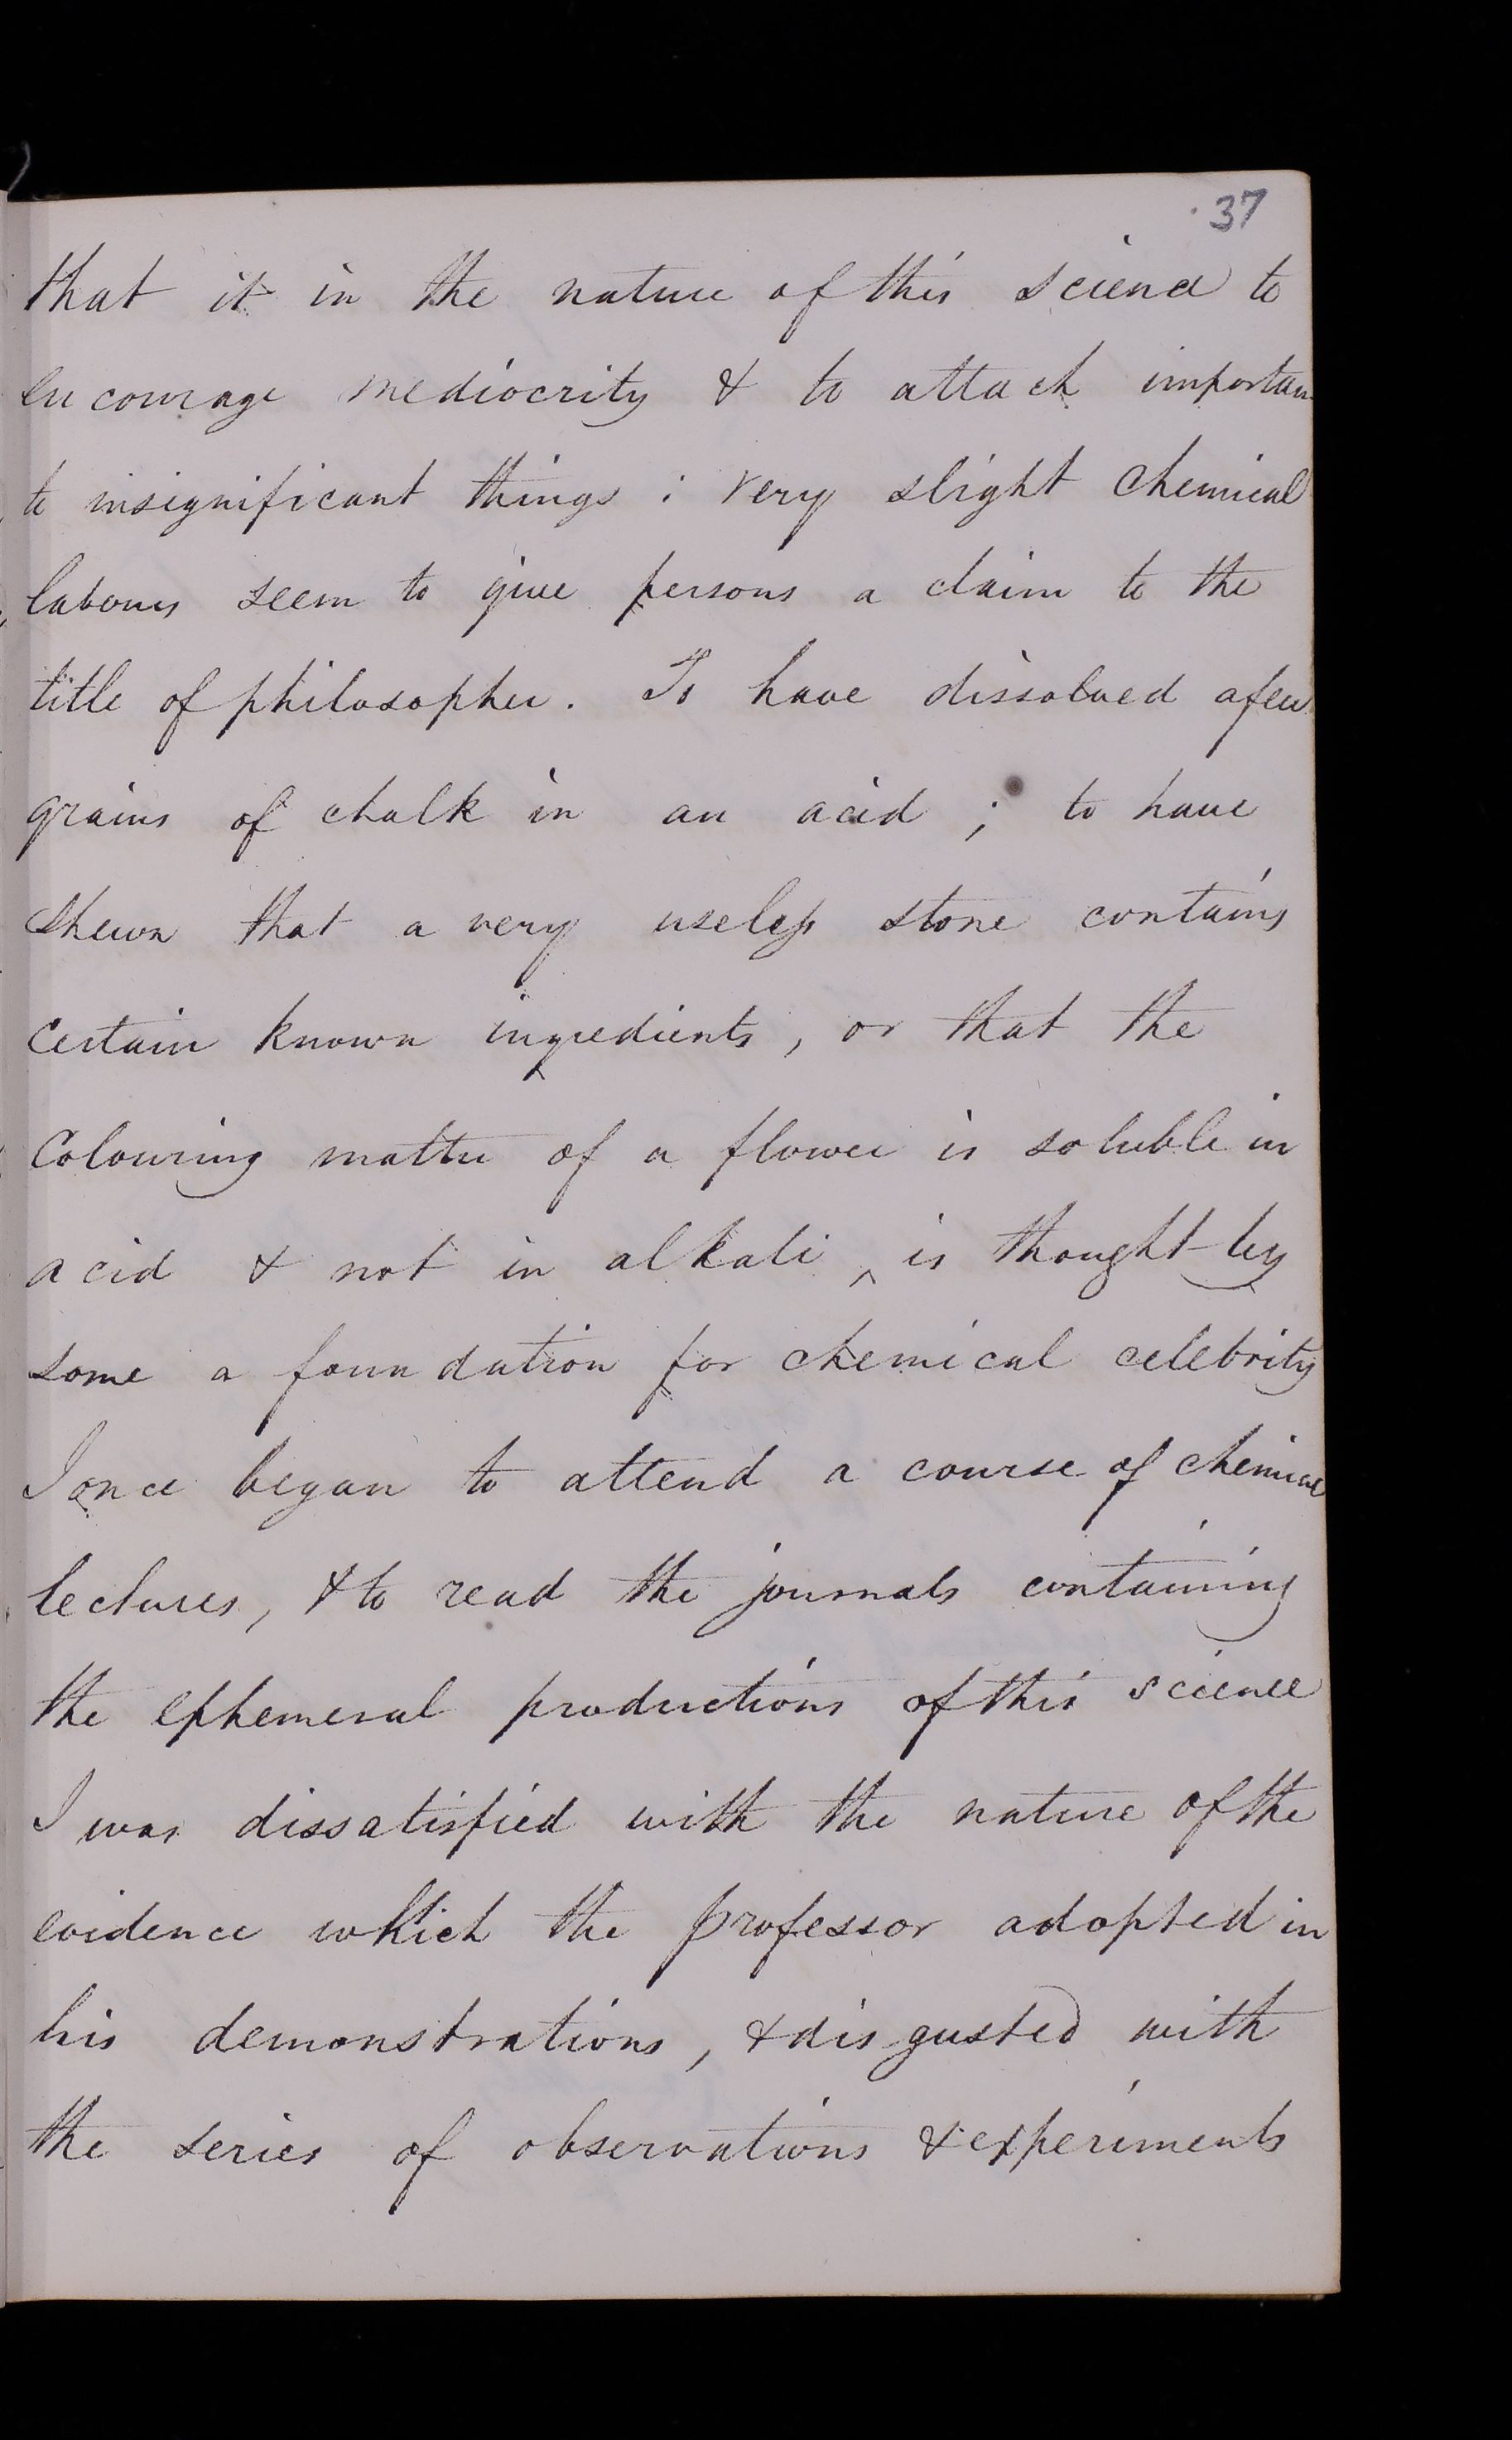 37
that it in the nature of this science to
encourage mediocrity & to attach importan
to insignificant things : very slight Chemical
labours seem to give persons a claim to the
title of philosopher. To have dissolved a few
grains of chalk in an acid ; to have
shewn that a very useless stone contains
certain known ingredients, or that the
Colouring matter of a flower is soluble in
acid & not in alkali ‸ is thought by
some a foundation for chemical celebrity
I once began to attend a course of chemical
lectures, & to read the journals containing
the ephemeral productions of this science
I was dissatisfied with the nature of the
evidence which the professor adopted in
his demonstrations, & disgusted with
the series of observations & experiments